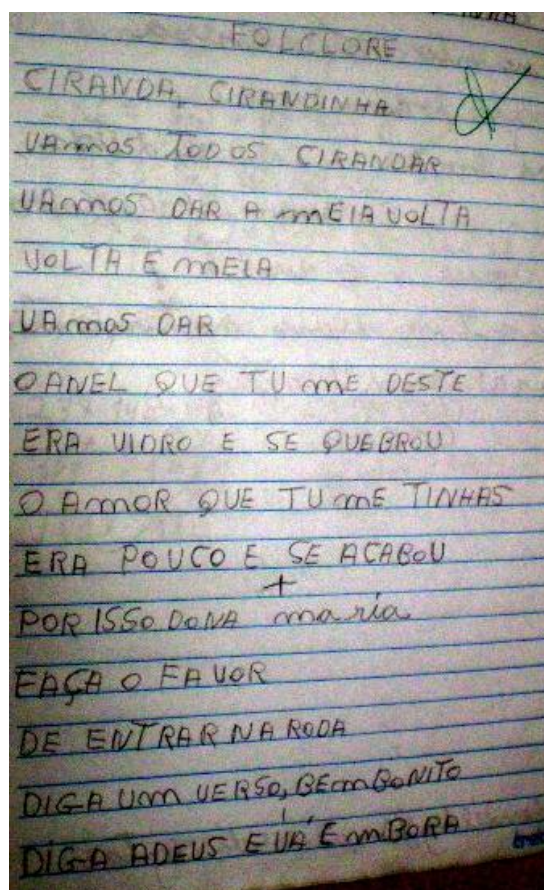 FOLCLORE
CIRANDA, CIRANDINHA
VAmmOS TODOS CIRANDAR
VAmmOS DAR A mEIA VOLTA
VOLTA E mEIA
VAmmOS DAR
O ANEL QUE TU mE DESTE
ERA VIDRO E SE QUEBROU
O AmOR QUE TU mE TINHAS
ERA POUCO E SE ACABOU
+
POR ISSO DONA maria
FAÇA O FAVOR
DE ENTRAR NA RODA
DIGA Um VERSO, BEm BONITO
DIGA ADEUS E VÁ EmBORA